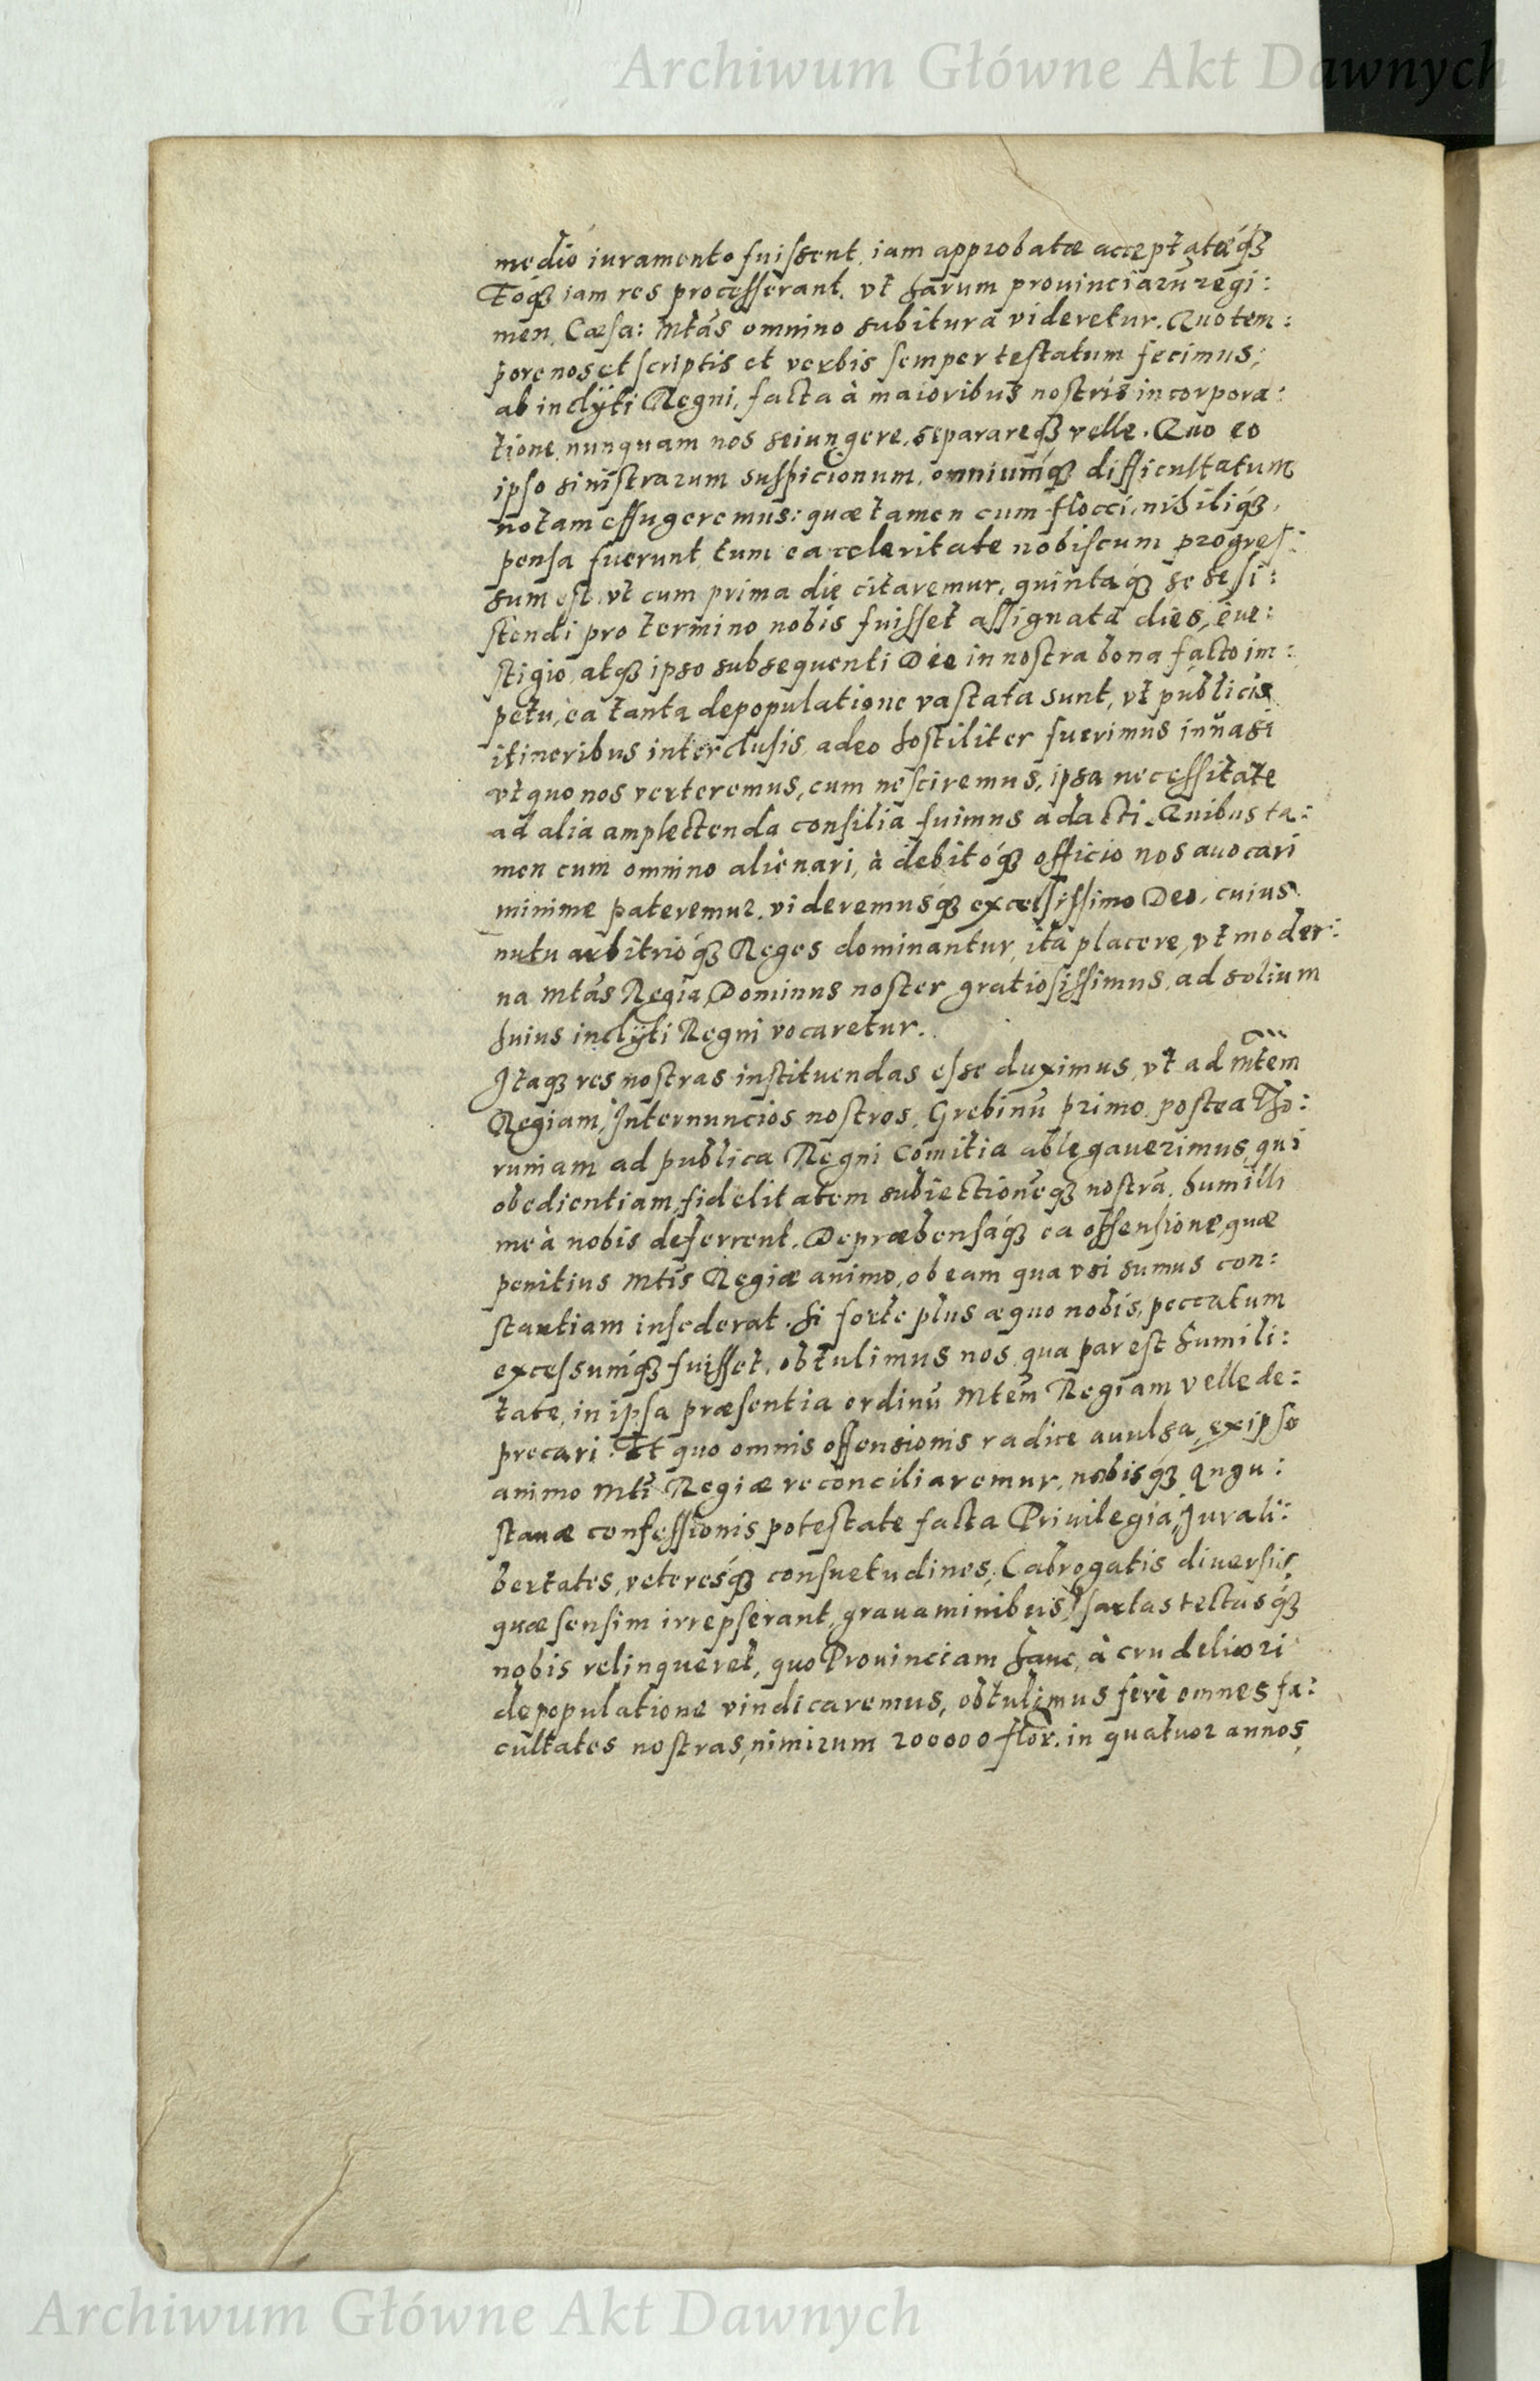 Archiwum Główne Akt Dawnych
medio iuramento fuissent, iam approbatæ acceptatæq́3
Eóq3 iam res processerant, vt harum prouinciarū regi:
men, Cæsa: Mtas omnino subitura videretur. Quo tem:
pore nos et scriptis et verbis semper testatum fecimus;
ab inclyti Regni, facta à maioribus nostris incorpora:
tione, nunquam nos seiungere, separareq3 velle. Quo eo
ipso sinistrarum suspicionum, omniumq́3 difficultatum
notam effugeremus: quæ tamen cum flocci, nihiliq́3,
pensa fuerunt, tum ea celeritate nobiscum progres:
sum est, vt cum prima die citaremur, quintaq́3 se se si:
stendi pro termino nobis fuisset assignata dies, e ue:
stigio, atq3 ipso subsequenti Die in nostra bona facto im:
petu, ea tanta depopulatione vastata sunt, vt publicis
itineribus interclusis, adeo hostiliter fuerimus inuasi
vt quo nos verteremus, cum nesciremus, ipsa necessitate
ad alia amplectenda consilia fuimus adacti. Quibus ta:
men cum omnino alienari, à debitóq́3 officio nos auocari
minime pateremur, videremusq́3 excelsissimo Deo, cuius
nutu arbitrióq́3 Reges dominantur, ita placere, vt moder:
na Mtas Regia, Dominus noster gratiosissimus, ad solium
huius inclyti Regni vocaretur.
Itaq3 res nostras instituendas esse duximus, vt ad Mtem
Regiam, Internuncios nostros, Grebinū primo, postea Tho:
runiam ad publica Regni Comitia ablegauerimus, qui
obedientiam, fidelitatem subiectionēq3 nostrā, humilli
me à nobis deferrent. Depræhensáq́3 ea offensione, quæ
penitius Mtis Regiæ animo, ob eam qua vsi sumus con:
stantiam insederat. Si forte plus æquo nobis, peccatum
excessumq́3 fuisset, obtulimus nos, qua par est humili:
tate, in ipsa præsentia ordinū Mtem Regiam velle de:
precari. Et quo omnis offensionis radice auulsa, ex ipso
animo Mti Regiæ reconciliaremur, nobisq́3 Augu:
stanæ confessionis potestate facta Priuilegia, Jura li:
bertates, veteresq́3 consuetudines, (abrogatis diuersis,
quæ sensim irrepserant, grauaminibus) sartas tectasq́3
nobis relinqueret, quo Prouinciam hanc, à crudeliori
depopulatione vindicaremus, obtulimus ferè omnes fa:
cultates nostras, nimirum 200000 flor. in quatuor annos,
Archiwum Główne Akt Dawnych